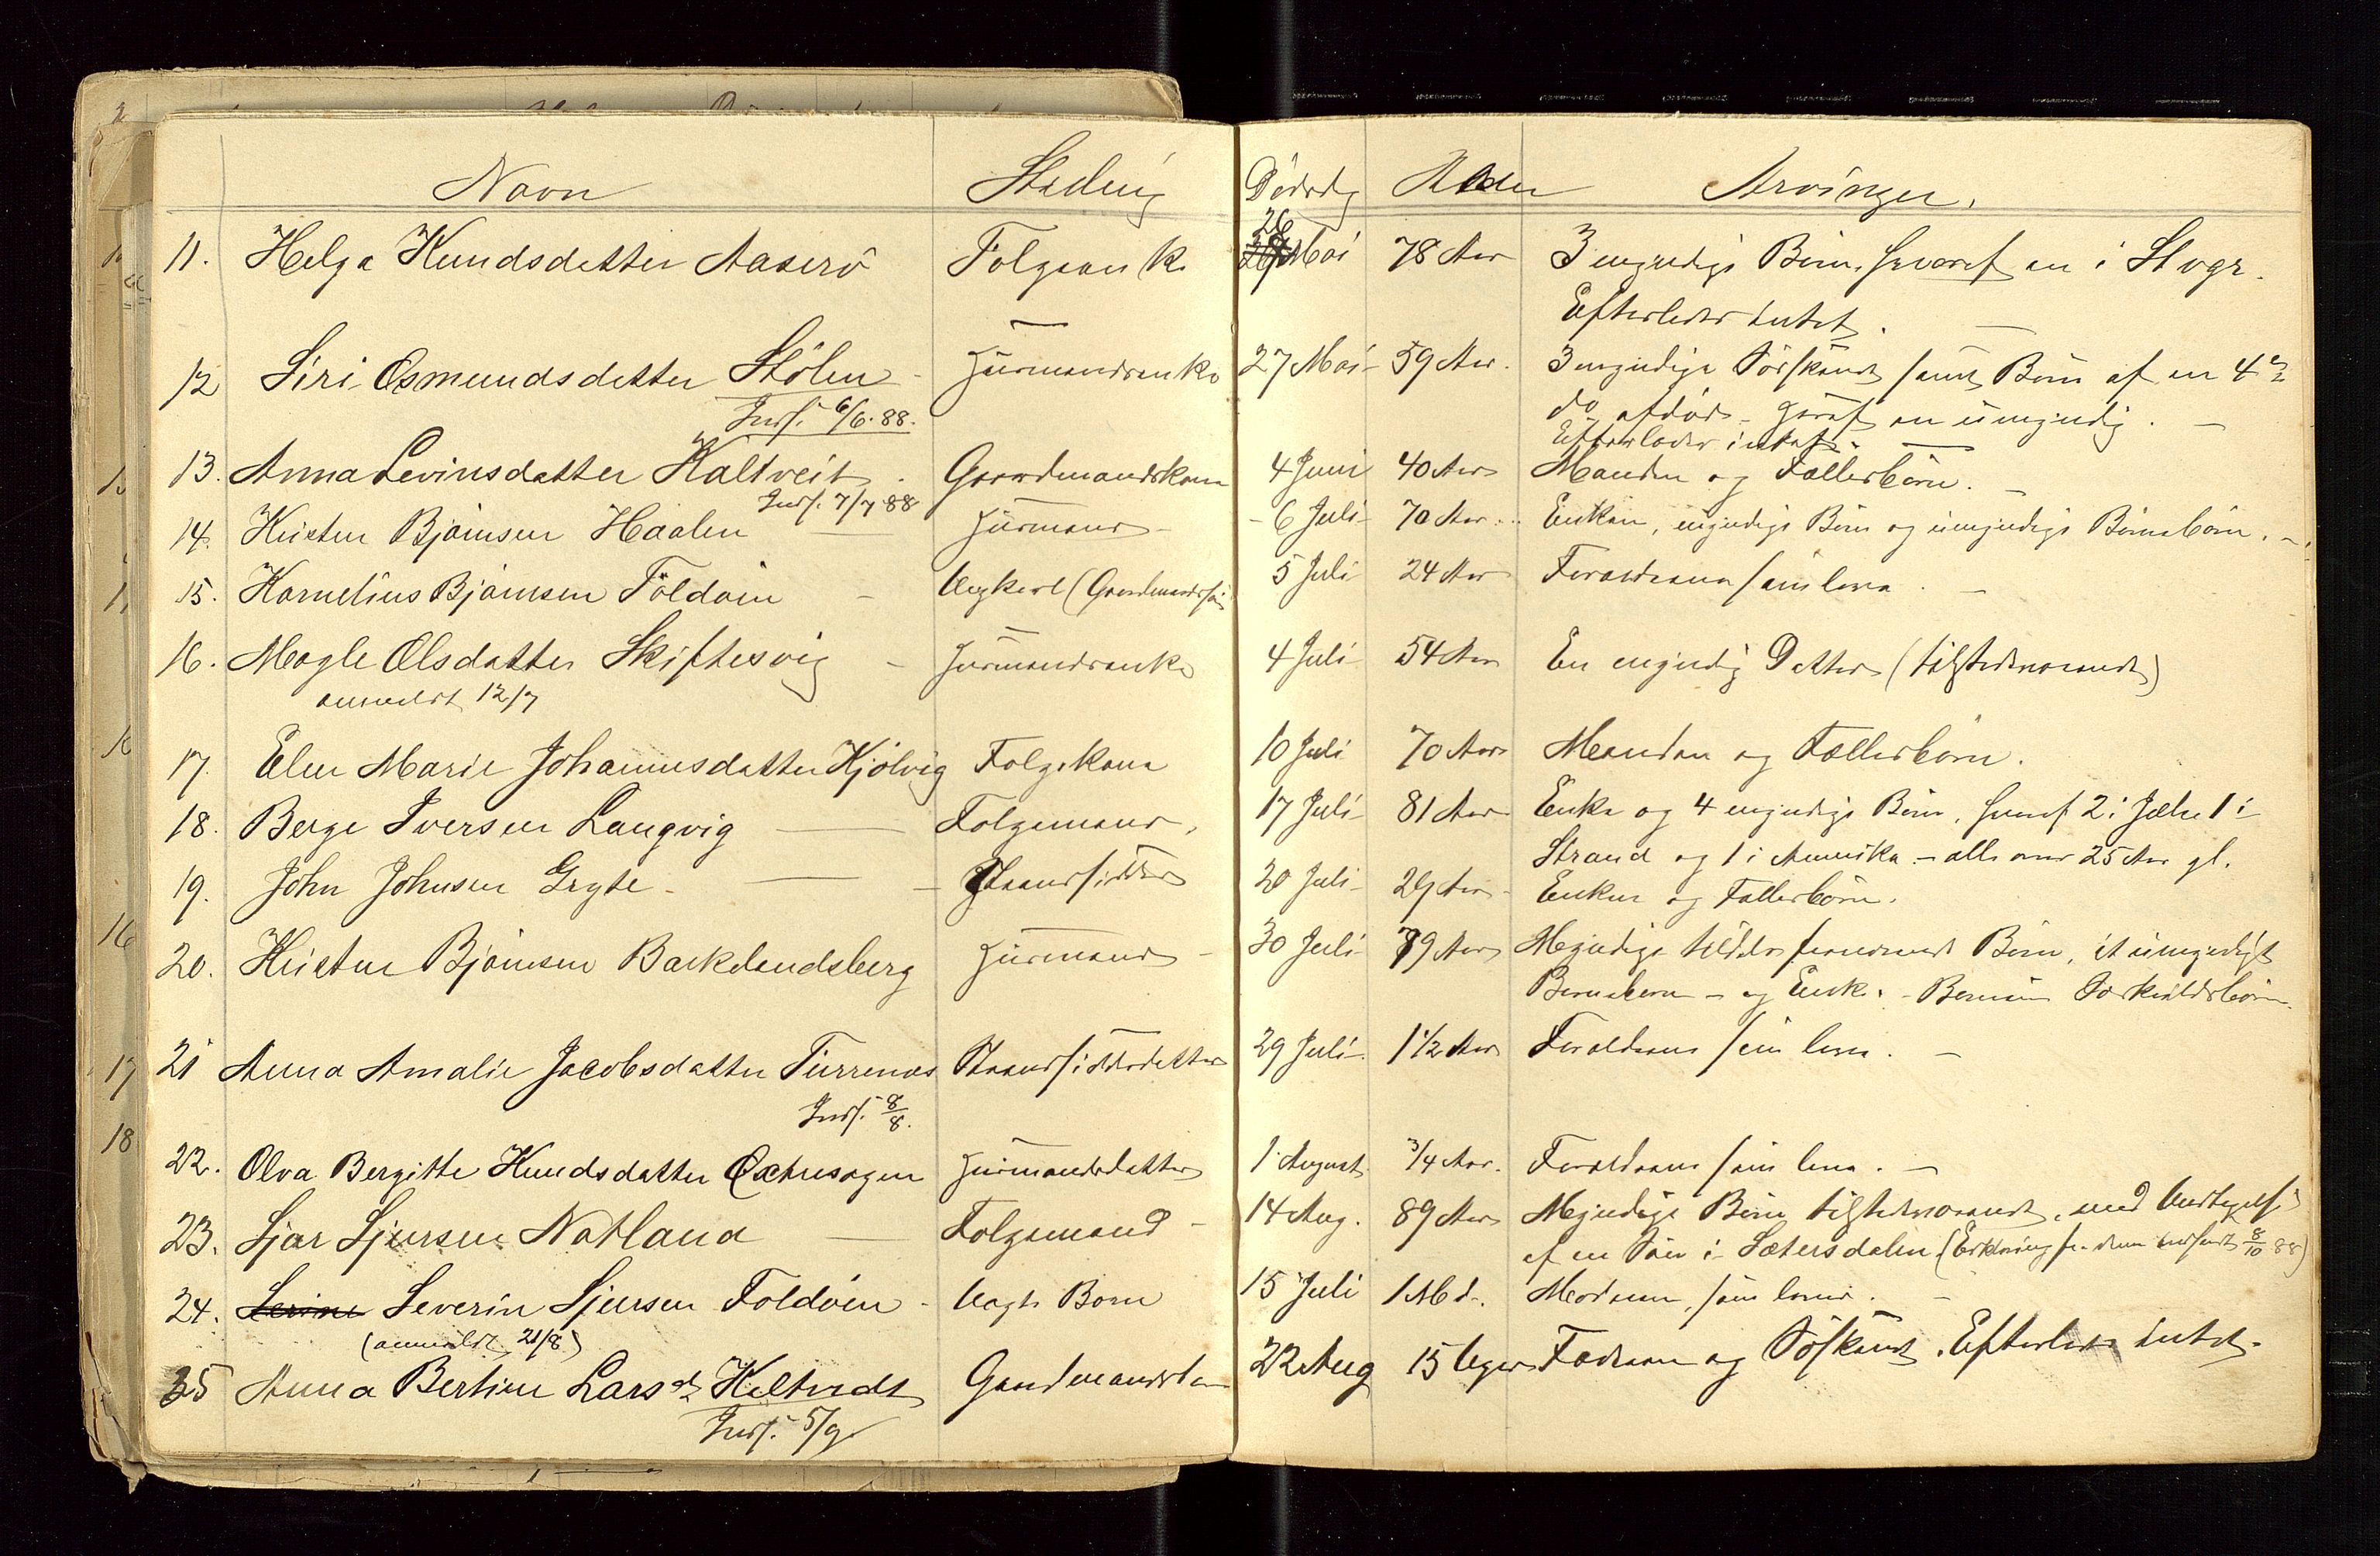 Navn Stilling Dødsdag Alder Arvinger.
11. Helga Knudsdatter Aaserö Folgeenke 26 Mai 78 Aar 3 myndige Börn, hvoraf en i Stvgr.
Efterlader intet. —
12 Siri Osmundsdatter Stölen Husmandsenke 27 Mai 59 Aar. 3 myndige Söskende samt Börn af en 4de
Indf. 6/6. 88. do afdöd – hvoraf en umyndig. —
Efterlader intet. —
13. Anna Levinsdatter Kaltveit. Gaardmandskone 4 Juni 40 Aar Manden og Fællesbörn. —
Indf. 7/7 88
14. Kristen Bjørnsen Haalen — Husmand – 6 Juli – 70 Aar. Enken, myndige Börn og umyndige Börnebörn. –
15. Kornelius Bjørnsen Földöen – Ungkarl (Gaardmandssön 5 Juli 24 Aar Forældrene som leve. —
16. Magle Olsdatter Skiftesvig – Husmandsenke 4 Juli 54 Aar En myndig Datter (tilstedeværende)
anmeldt 12/7
17. Elen Marie Johannesdatter Kjölvig Folgekone 10 Juli 70 Aar Manden og Fællesbörn.
18. Berge Iversen Langvig — Folgemand, 17 Juli – 81 Aar Enke og 4 myndige Börn, hvoraf 2 i Jælse 1 i
Strand og 1 i Amerika – alle over 25 Aar gl.
19. John Johnsen Gryte – — Strandsidder 20 Juli – 29 Aar – Enken og Fællesbörn.
20. Kristen Bjørnsen Barkelandsberg Husmand – 30 Juli – 79 Aar Myndige Börn, et umyndigt
Barnebarn – og Enke. –
21 Anna Amalie Jacobsdatter Turrenæs Strandsidderdatter 29 Juli – 1 1/2 Aar Forældrene som leve. —
Indf. 8/8.
22. Olva Bergitte Knudsdatter Husmandsdatter 1 August 3/4 Aar. Forældrene som leve. —
23. Sjur Sjursen Natland — Folgemand – 14 Aug. 89 Aar Myndige Börn tilstedeværende, med Undtagelse
af en Sön i Sætersdalen (Erklæring fra dem indsendt 8/10 88)
24. Severin Sjursen Foldöen – Uægte Barn 15 Juli 1 Md. Moderen, som lever. —
(anmeldt 21/8)
25 Anna Bertine Larsdt. Kaltvedt Gaardmandsbarn 22 Aug 15 Uger Faderen og Söskende. Efterlader intet.
Indf. 5/9
2
16
17
18